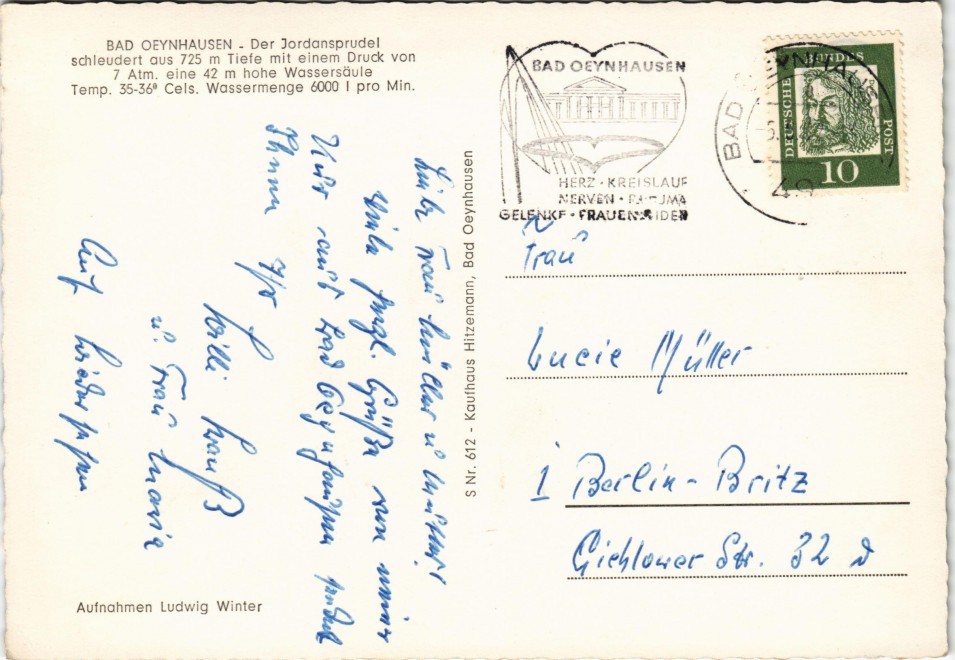 BAD OEYNHAUSEN - Der Jordansprudel
schleudert aus 725 m Tiefe mit einem Druck von
7 Atm. eine 42 m hohe Wassersäule
Temp. 35-36° Cels. Wassermenge 6000 l pro Min.
Liebe Frau Müller u
viele Grüße von meiner
Kur aus Bad Oeynhausen sendet
Ihnen
Willi
u. Frau Maria
Auf
Wiedersehen
Aufnahmen Ludwig Winter
S Nr. 612 - Kaufhaus Hitzemann, Bad Oeynhausen
BAD OEYNHAUSEN
HERZ · KREISLAUF
NERVEN · RHEUMA
GELENKE · FRAUENLEIDEN
BAD OEYNHAUSEN
49
DEUTSCHE
BUNDES
POST
10
Frau
Lucie Müller
1 Berlin-Britz
Gielower Str. 32 d